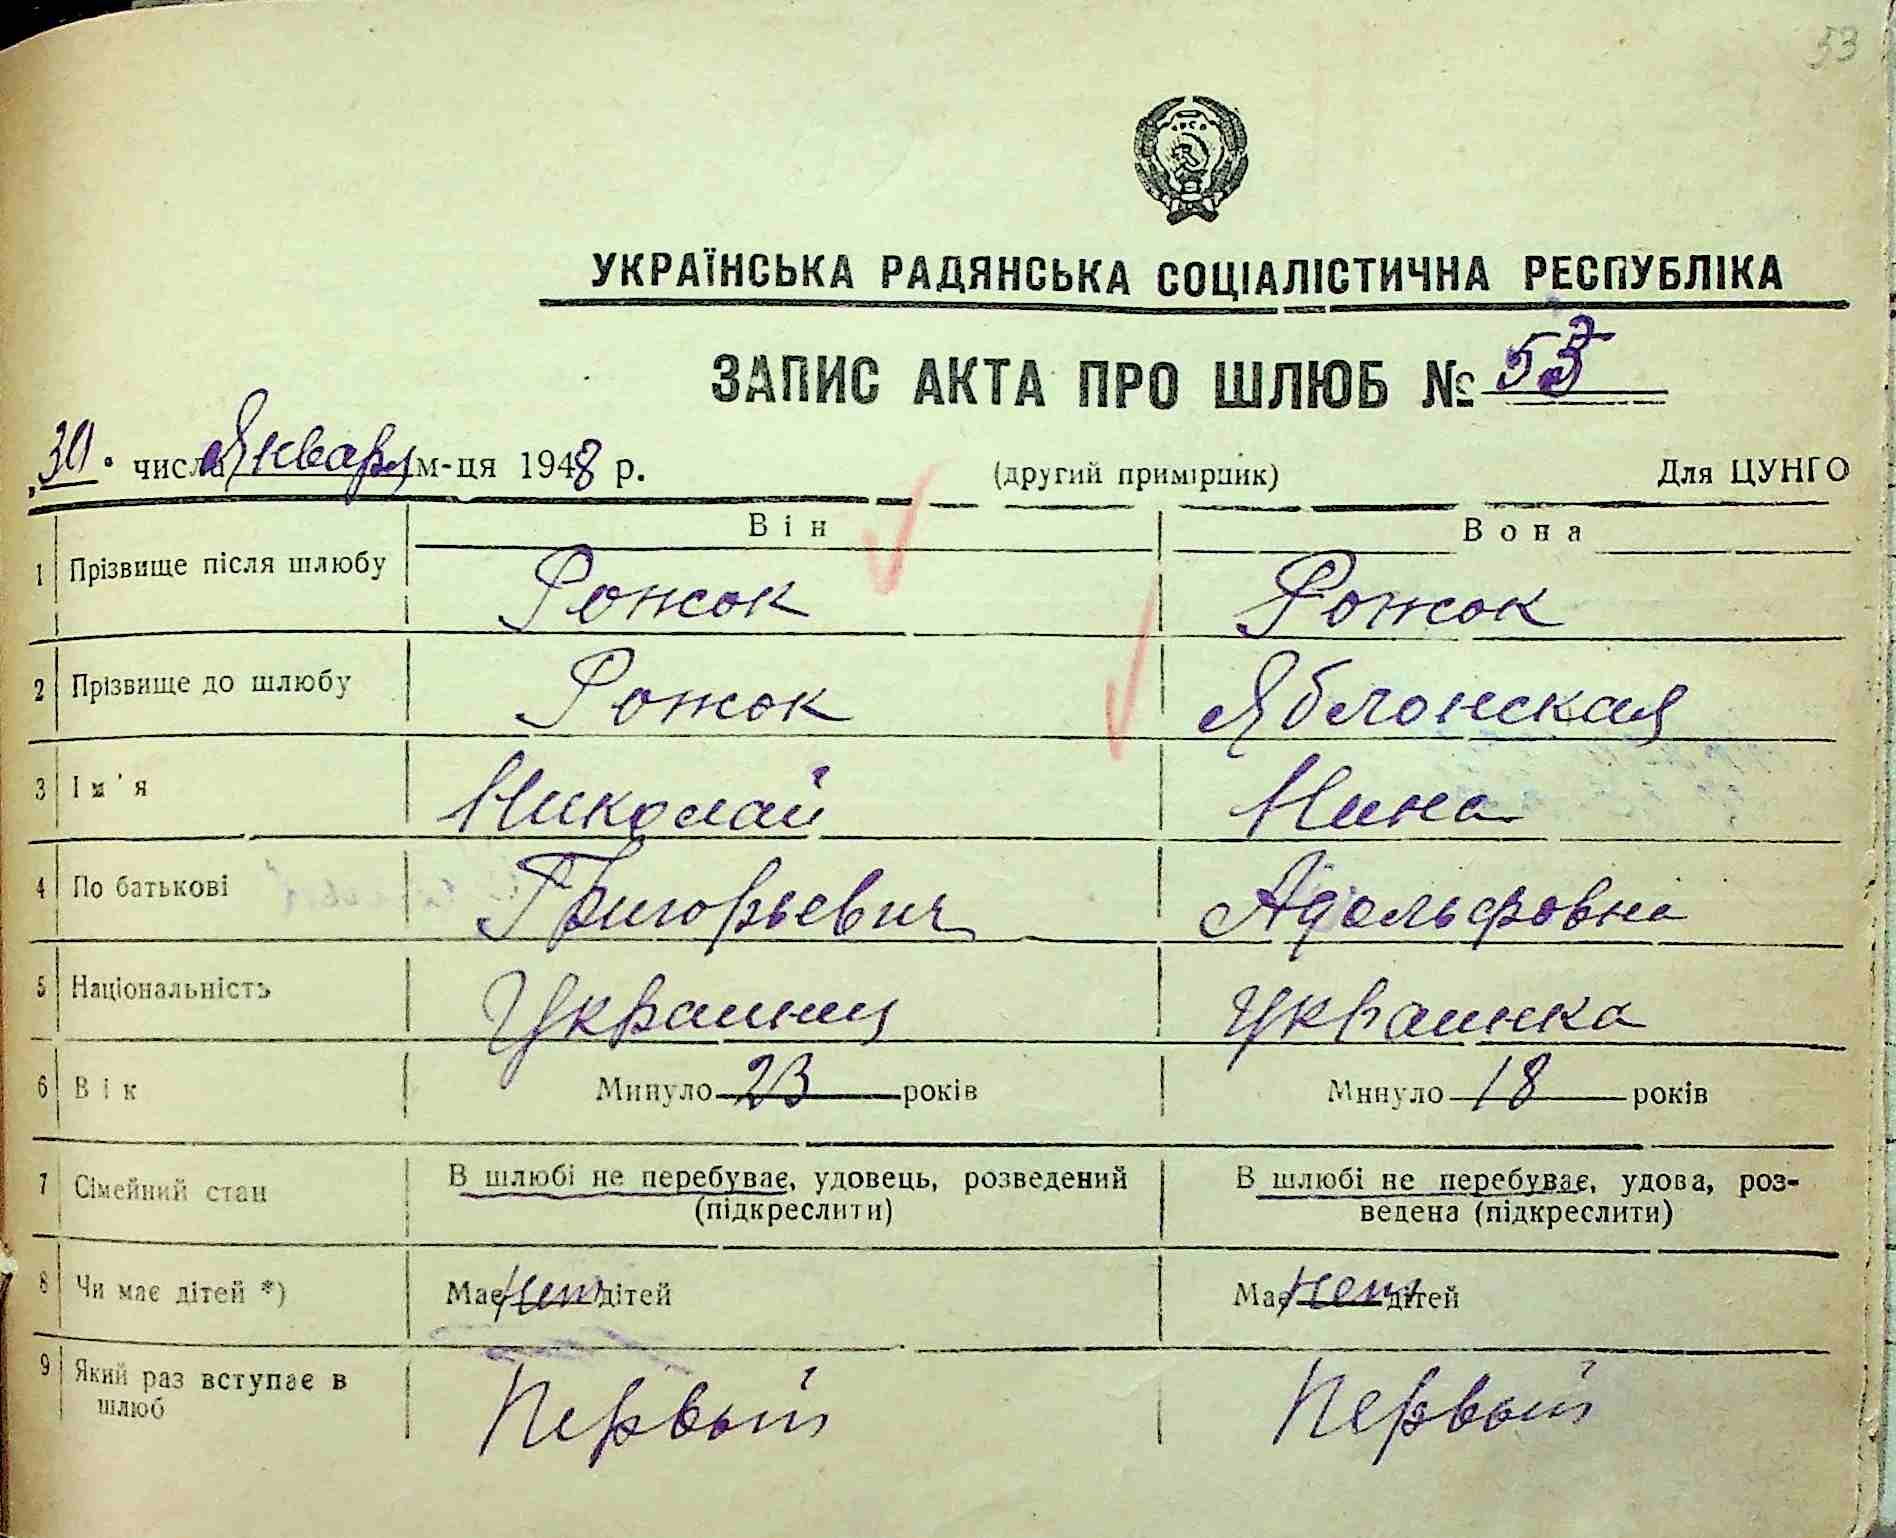 53
УКРАЇНСЬКА РАДЯНСЬКА СОЦІАЛІСТИЧНА РЕСПУБЛІКА
ЗАПИС АКТА ПРО ШЛЮБ № 53
30 числа Января м-ця 1948 р. (другий примірник) Для ЦУНГО
Він Вона
1 Прізвище після шлюбу Рожок Рожок
2 Прізвище до шлюбу Рожок Яблонская
3 Ім'я Николай Нина
4 По батькові Григорьевич Адольфовна
5 Національність Украинец Украинка
6 Вік Минуло 23 років Минуло 18 років
7 Сімейний стан В шлюбі не перебуває, удовець, розведений В шлюбі не перебуває, удова, роз-
(підкреслити) ведена (підкреслити)
8 Чи має дітей *) Має нет дітей Має нет дітей
9 Який раз вступає в Первый Первый
шлюб